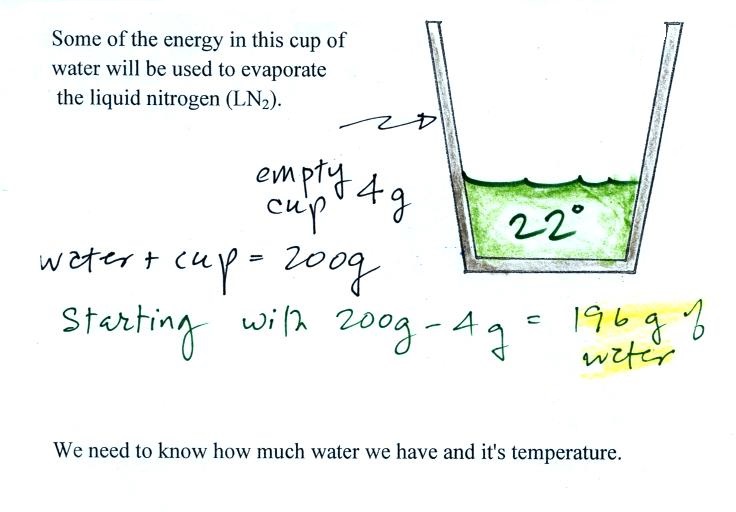 Some of the energy in this cup of
water will be used to evaporate
the liquid nitrogen (LN₂).
empty
cup 4g
22°
water + cup = 200g
Starting with 200g - 4g = 196 g of
water
We need to know how much water we have and it's temperature.